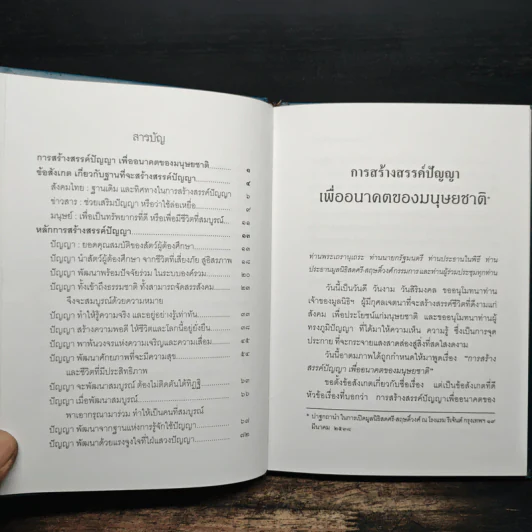 สารบัญ
การสร้างสรรค์ปัญญา เพื่ออนาคตของมนุษยชาติ ๑
ข้อสังเกต เกี่ยวกับฐานที่จะสร้างสรรค์ปัญญา ๔
สังคมไทย : ฐานเดิม และทิศทางในการสร้างสรรค์ปัญญา ๖
ข่าวสาร : ช่วยเสริมปัญญา หรือว่าใช้ล่อเหยื่อ
มนุษย์ : เพื่อเป็นทรัพยากรที่ดี หรือเพื่อมีชีวิตที่สมบูรณ์
หลักการสร้างสรรค์ปัญญา ๑๓
ปัญญา : ยอดคุณสมบัติของสัตว์ผู้ต้องศึกษา
ปัญญา นำสัตว์ผู้ต้องศึกษา จากชีวิตที่เสี่ยงภัย สู่อิสรภาพ
ปัญญา พัฒนาพร้อมปัจจัยร่วม ในระบบองค์รวม
ปัญญา ทั้งเข้าถึงธรรมชาติ ทั้งสามารถจัดสรรสังคม
จึงจะสมบูรณ์ด้วยความหมาย
ปัญญา ทำให้รู้ความจริง และอยู่อย่างรู้เท่าทัน
ปัญญา สร้างความพอดี ให้ชีวิตและโลกนี้อยู่ยั่งยืน
ปัญญา พาพ้นวงจรแห่งความเจริญและความเสื่อม ๕๔
ปัญญา พัฒนาศักยภาพที่จะมีความสุข
และชีวิตที่มีประสิทธิภาพ
ปัญญา จะพัฒนาสมบูรณ์ ต้องไม่ติดตันใต้ทิฏฐิ ๖๐
ปัญญา เมื่อพัฒนาสมบูรณ์
พาเอากรุณามาร่วม ทำให้เป็นคนที่สมบูรณ์ ๖๘
ปัญญา พัฒนาจากฐานแห่งการรู้จักใช้ปัญญา
ปัญญา พัฒนาด้วยแรงจูงใจที่ใฝ่แสวงปัญญา ๘๒
การสร้างสรรค์ปัญญา
เพื่ออนาคตของมนุษยชาติ*
ท่านพระเถรานุเถระ ท่านนายกรัฐมนตรี ท่านประธานในพิธี ท่าน
ประธานมูลนิธิสดศรี-สฤษดิ์วงศ์กรรมการและท่านผู้ร่วมประชุมทุกท่าน
วันนี้เป็นวันดี วันงาม วันสิริมงคล ขออนุโมทนาท่าน
เจ้าของมูลนิธิฯ ผู้มีกุศลเจตนาที่จะสร้างสรรค์ชีวิตที่ดีงามแก่
สังคม เพื่อประโยชน์แก่มนุษยชาติ และขออนุโมทนาท่านผู้
ทรงภูมิปัญญา ที่ได้มาให้ความเห็น ความรู้ ซึ่งเป็นการจุด
ประกาย ที่จะกระจายแสงสาดส่องสู่สิ่งที่สดใสงดงาม
วันนี้อาตมภาพได้ถูกกำหนดให้มาพูดเรื่อง "การสร้าง
สรรค์ปัญญา เพื่ออนาคตของมนุษยชาติ"
ขอตั้งข้อสังเกตเกี่ยวกับชื่อเรื่อง แต่เป็นข้อสังเกตที่ดี
หัวข้อเรื่องที่บอกว่า การสร้างสรรค์ปัญญาเพื่ออนาคตของ
* ปาฐกถานำ ในการเปิดมูลนิธิสดศรี-สฤษดิ์วงศ์ ณ โรงแรม กรุงเทพฯ ๑๙
มีนาคม ๒๕๓๘